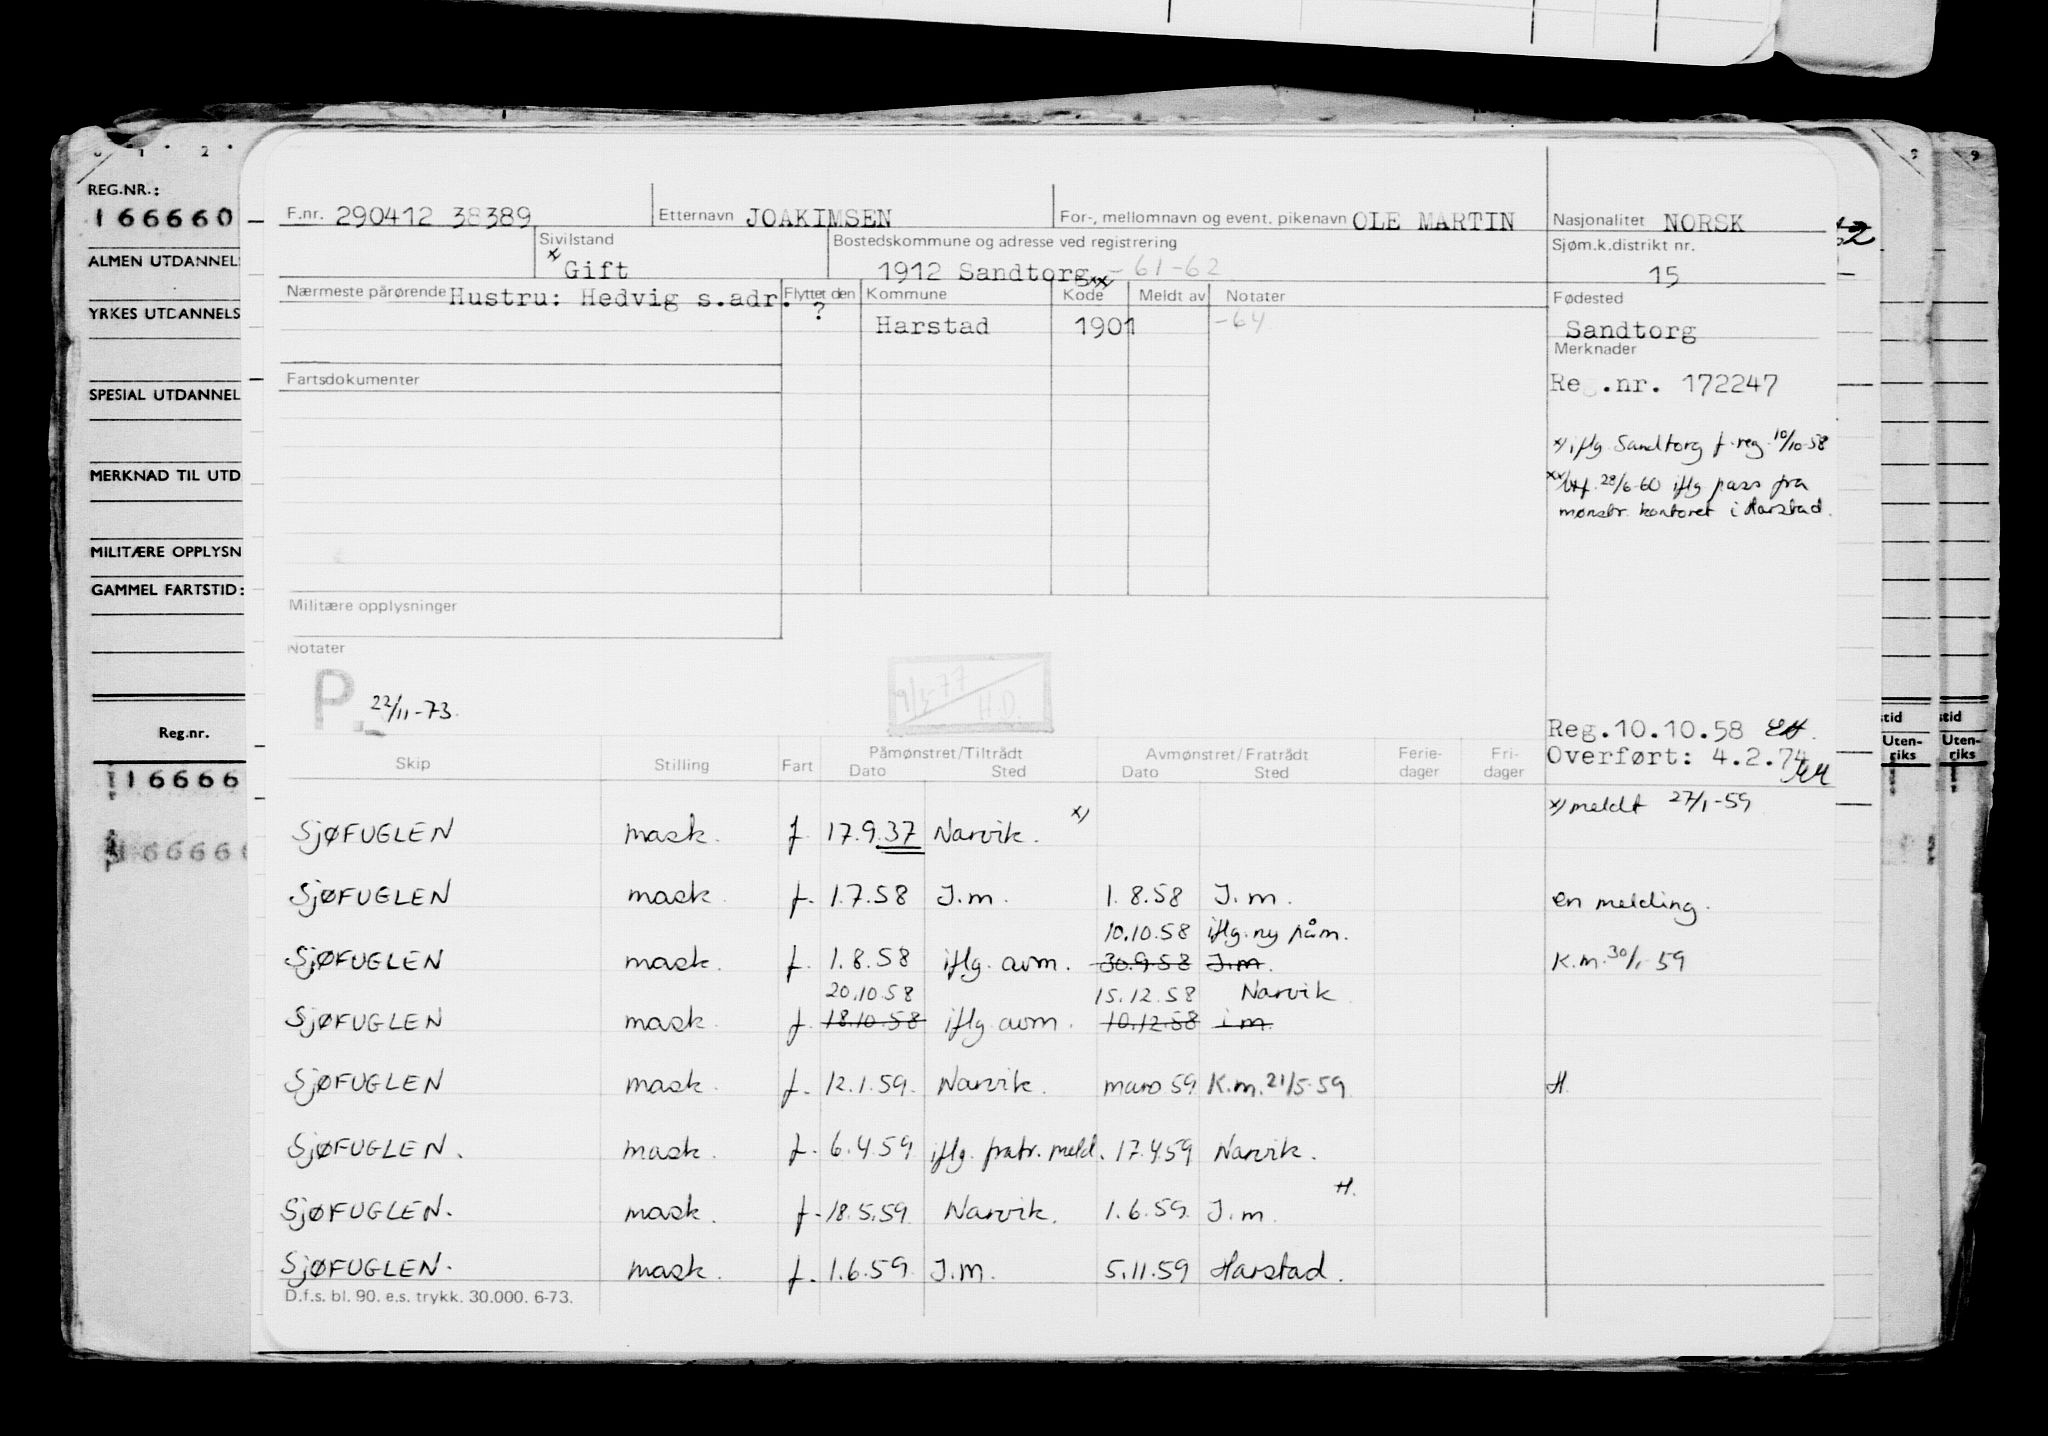 REG.NR.:
166660
ALMEN UTDANNEL
YRKES UTDANNELS
SPESIAL UTDANNEL
MERKNAD TIL UTD
MILITÆRE OPPLYSN
GAMMEL FARTSTID:
Reg.nr.
16666
F.nr. 290412 38389 Etternavn JOAKIMSEN For-, mellomnavn og event. pikenavn OLE MARTIN Nasjonalitet NORSK
Sivilstand Bostedskommune og adresse ved registrering Sjøm.k.distrikt nr.
x Gift 1912 Sandtorg xx -61-62 15
Nærmeste pårørende Hustru: Hedvig s.adr. Flyttet den Kommune Kode Meldt av Notater Fødested
? Harstad 1901 -64 Sandtorg
Merknader
Fartsdokumenter Reg.nr. 172247
x) iflg Sandtorg f.reg. 10/10-58
xx) Utf. 28/6-60 iflg pass fra
mønstr. kontoret i Harstad.
Militære opplysninger
Notater
P. 22/11-73
9/5-77 H.D.
Reg.10.10.58
Overført: 4.2.74
Skip Stilling Fart Påmønstret/Tiltrådt Avmønstret/Fratrådt Ferie- Fri-
Dato Sted Dato Sted dager dager
SJØFUGLEN mask. f. 17.9.37 Narvik. x) x) meldt 27/1-59
SJØFUGLEN mask. f. 1.7.58 I.m. 1.8.58 I.m. en melding.
10.10.58 iflg. ny påm.
SJØFUGLEN mask. f. 1.8.58 iflg. avm. 30.9.58 I.m. K.m. 30/1-59
20.10.58 15.12.58 Narvik
SJØFUGLEN mask. f. 18.10.58 iflg. avm. 10.12.58 i m.
SJØFUGLEN mask. f. 12.1.59. Narvik. mars 59 K.m. 21/5-59 H.
SJØFUGLEN. mask. f. 6.4.59 iflg. fratr. meld. 17.4.59 Narvik.
H.
SJØFUGLEN. mask. f. 18.5.59 Narvik. 1.6.59. I.m.
SJØFUGLEN. mask. f. 1.6.59. I.m. 5.11.59 Harstad.
D.f.s. bl. 90. e.s. trykk. 30.000. 6-73.
tid
Uten-
riks
tid
Uten-
riks